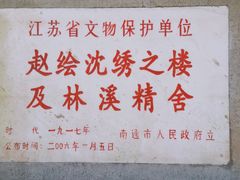 江苏省文物保护单位
赵绘沈绣之楼
及林溪精舍
时 代 一九一七年
公布时间：二00六年一月五日
南通市人民政府立